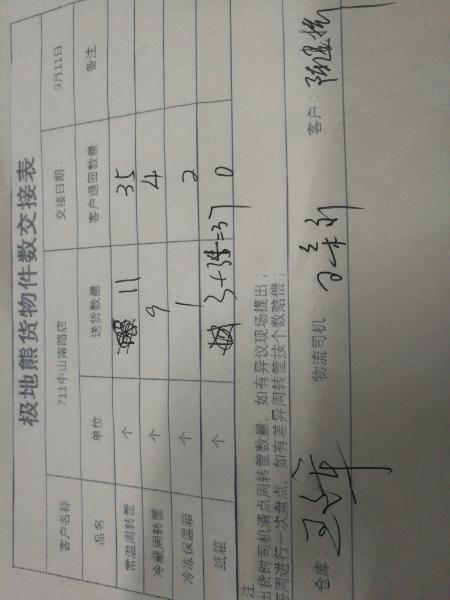 极地熊货物件数交接表
客户名称 711中山南路店 交接日期： 9月11日
品名 单位 送货数量 客户退回数量 备注
常温周转筐 个 11 35
冷藏周转筐 个 9 4
冷冻保温箱 个 1 2
纸箱 个 3+34=37 0
注：
出货时司机清点周转筐数量，如有异议现场提出；
每周进行一次盘点，如有差异周转筐按个数赔偿；
仓库： 物流司机： 客户：